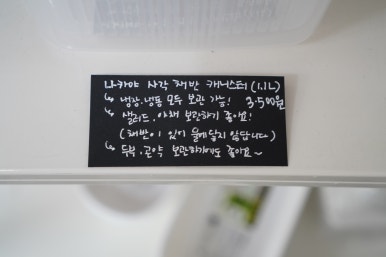 나카야 사각 채반 캐니스터 (1.1L)
↳ 냉장.냉동 모두 보관 가능! 3.500원
↳ 샐러드.야채 보관하기 좋아요!
(채반이 있어 물에 닿지 않답니다)
↳ 두부.곤약 보관하기에도 좋아요~